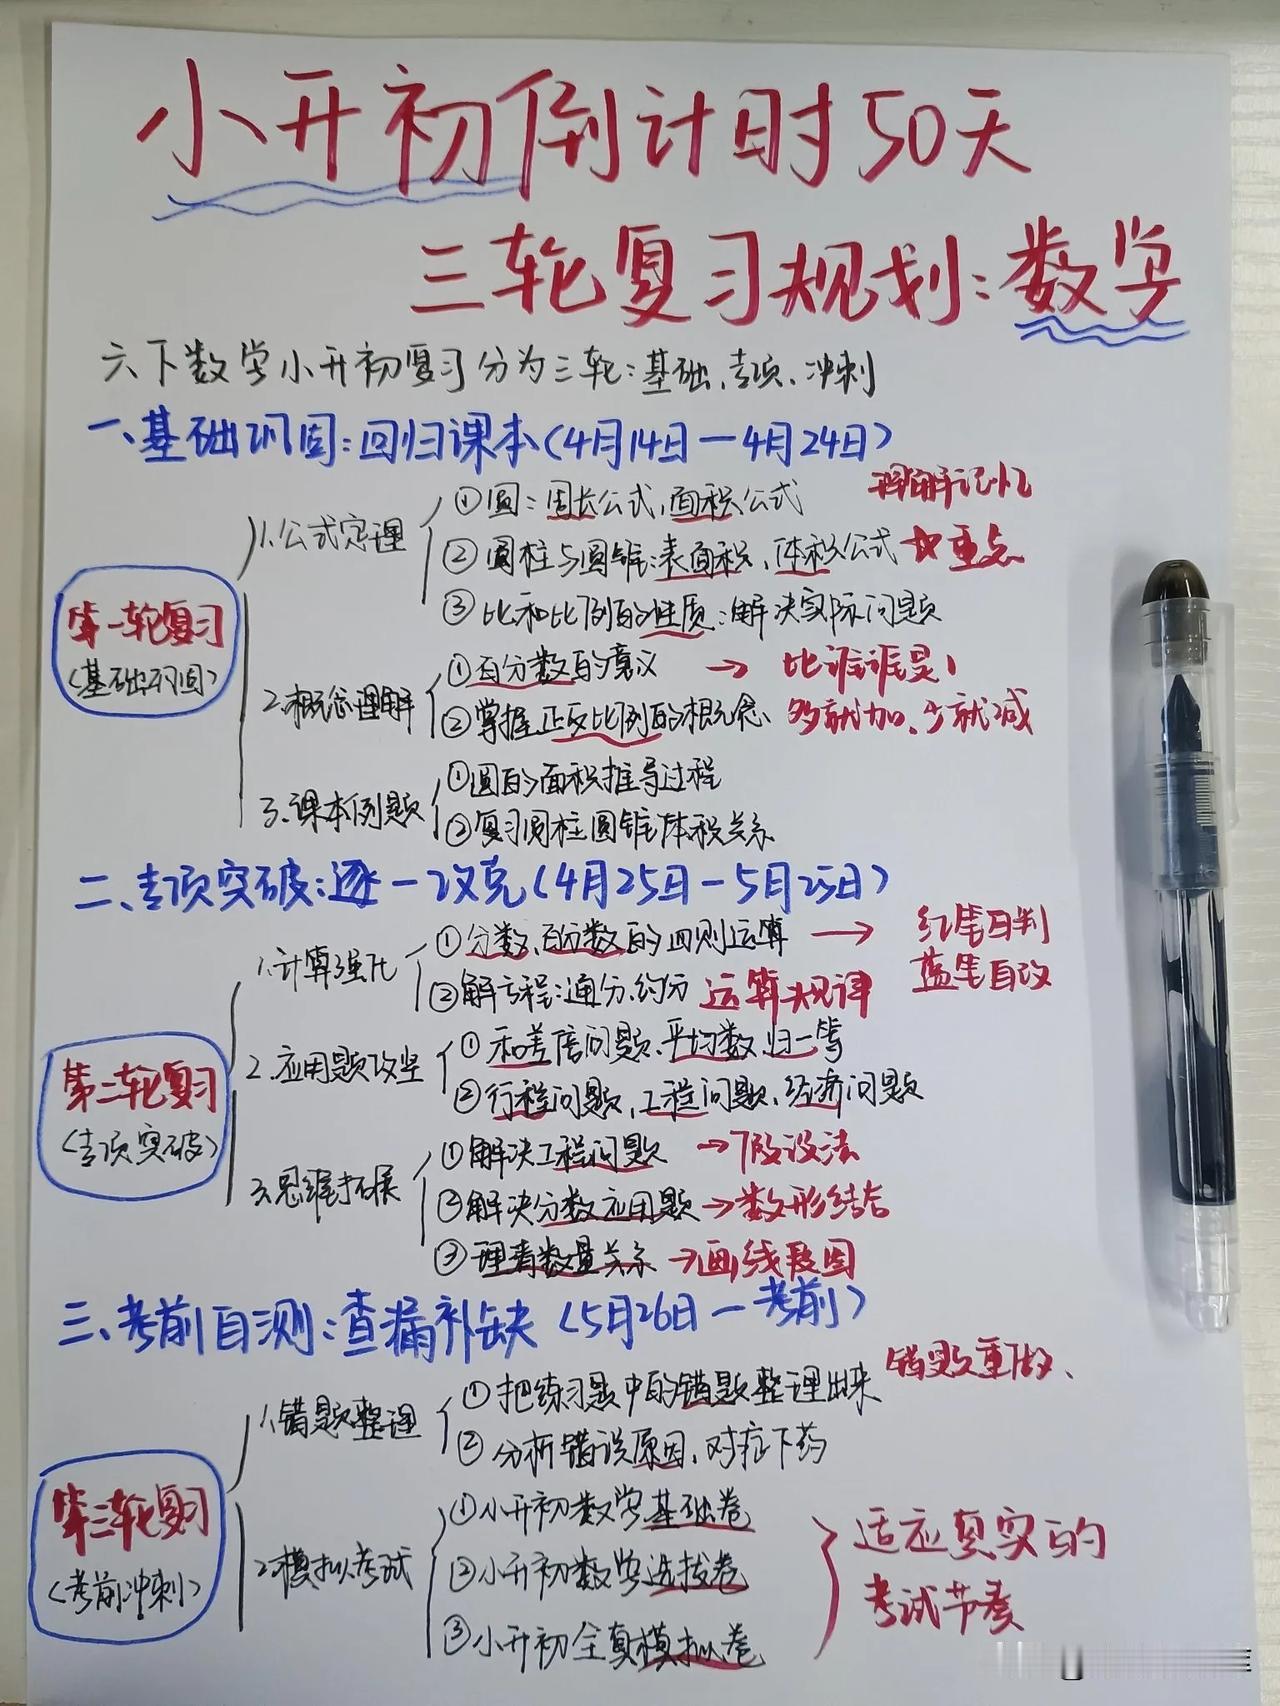 小升初倒计时50天
三轮复习规划:数学
六下数学小升初复习分为三轮:基础、专项、冲刺
一、基础巩固:回归课本(4月14日—4月24日)
第一轮复习
(基础巩固)
1.公式定理
①圆:周长公式,面积公式 理解记忆
②圆柱与圆锥:表面积、体积公式 ☆重点
③比和比例的性质:解决实际问题
2.概念理解
①百分数的意义 → 比谁谁是1
②掌握正反比例的概念、 多就加、少就减
3.课本例题
①圆的面积推导过程
②复习圆柱圆锥体积关系
二、专项突破:逐一攻克(4月25日—5月25日)
第二轮复习
(专项突破)
1.计算强化
①分数、百分数的四则运算 → 红笔自判
蓝笔自改
②解方程:通分、约分 运算规律
2.应用题攻坚
①和差倍问题、平均数、归一等
②行程问题,工程问题、经济问题
3.思维拓展
①解决工程问题 →假设法
②解决分数应用题→数形结合
③理清数量关系→画线段图
三、考前自测:查漏补缺(5月26日—考前)
第三轮复习
(考前冲刺)
1.错题整理
①把练习题中的错题整理出来 错题重做、
②分析错误原因、对症下药
2.模拟考试
①小升初数学基础卷
②小升初数学选拔卷
③小升初全真模拟卷
适应真实的
考试节奏